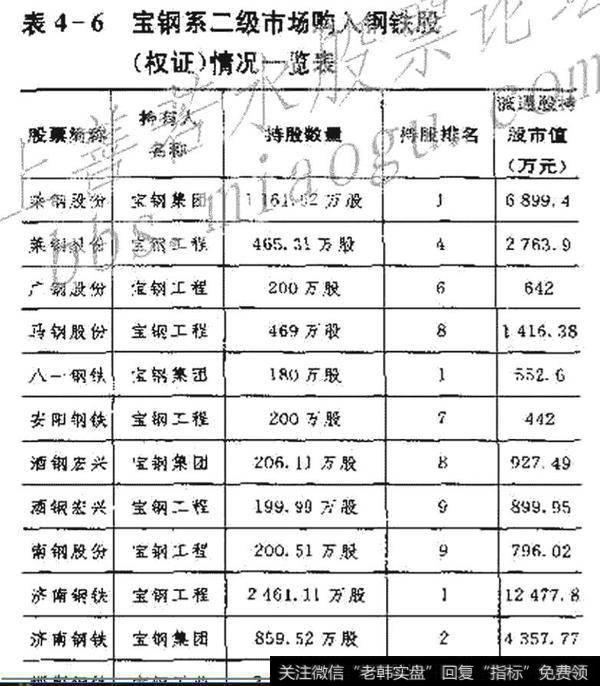 表 4-6 宝钢系二级市场购入钢铁股
(权证)情况一览表
股票简称 持有人名称 持股数量 持股排名 流通股持股市值(万元)
莱钢股份 宝钢集团 1 161.62 万股 1 6 899.4
莱钢股份 宝钢工程 465.31 万股 4 2 763.9
广钢股份 宝钢工程 200 万股 6 642
马钢股份 宝钢工程 469 万股 8 1 416.38
八一钢铁 宝钢集团 180 万股 1 552.6
安阳钢铁 宝钢工程 200 万股 7 442
酒钢宏兴 宝钢集团 206.11 万股 8 927.49
酒钢宏兴 宝钢工程 199.99 万股 9 899.95
南钢股份 宝钢工程 200.51 万股 9 796.02
济南钢铁 宝钢工程 2 461.11 万股 1 12 477.8
济南钢铁 宝钢集团 859.52 万股 2 4 357.77
上善若水股票论坛
bbs.miaogu.com
关注微信"老韩实盘"回复"指标"免费领